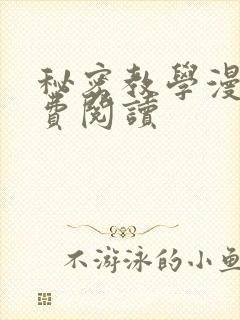 秘密教學漫
費閱讀
不游泳的小魚